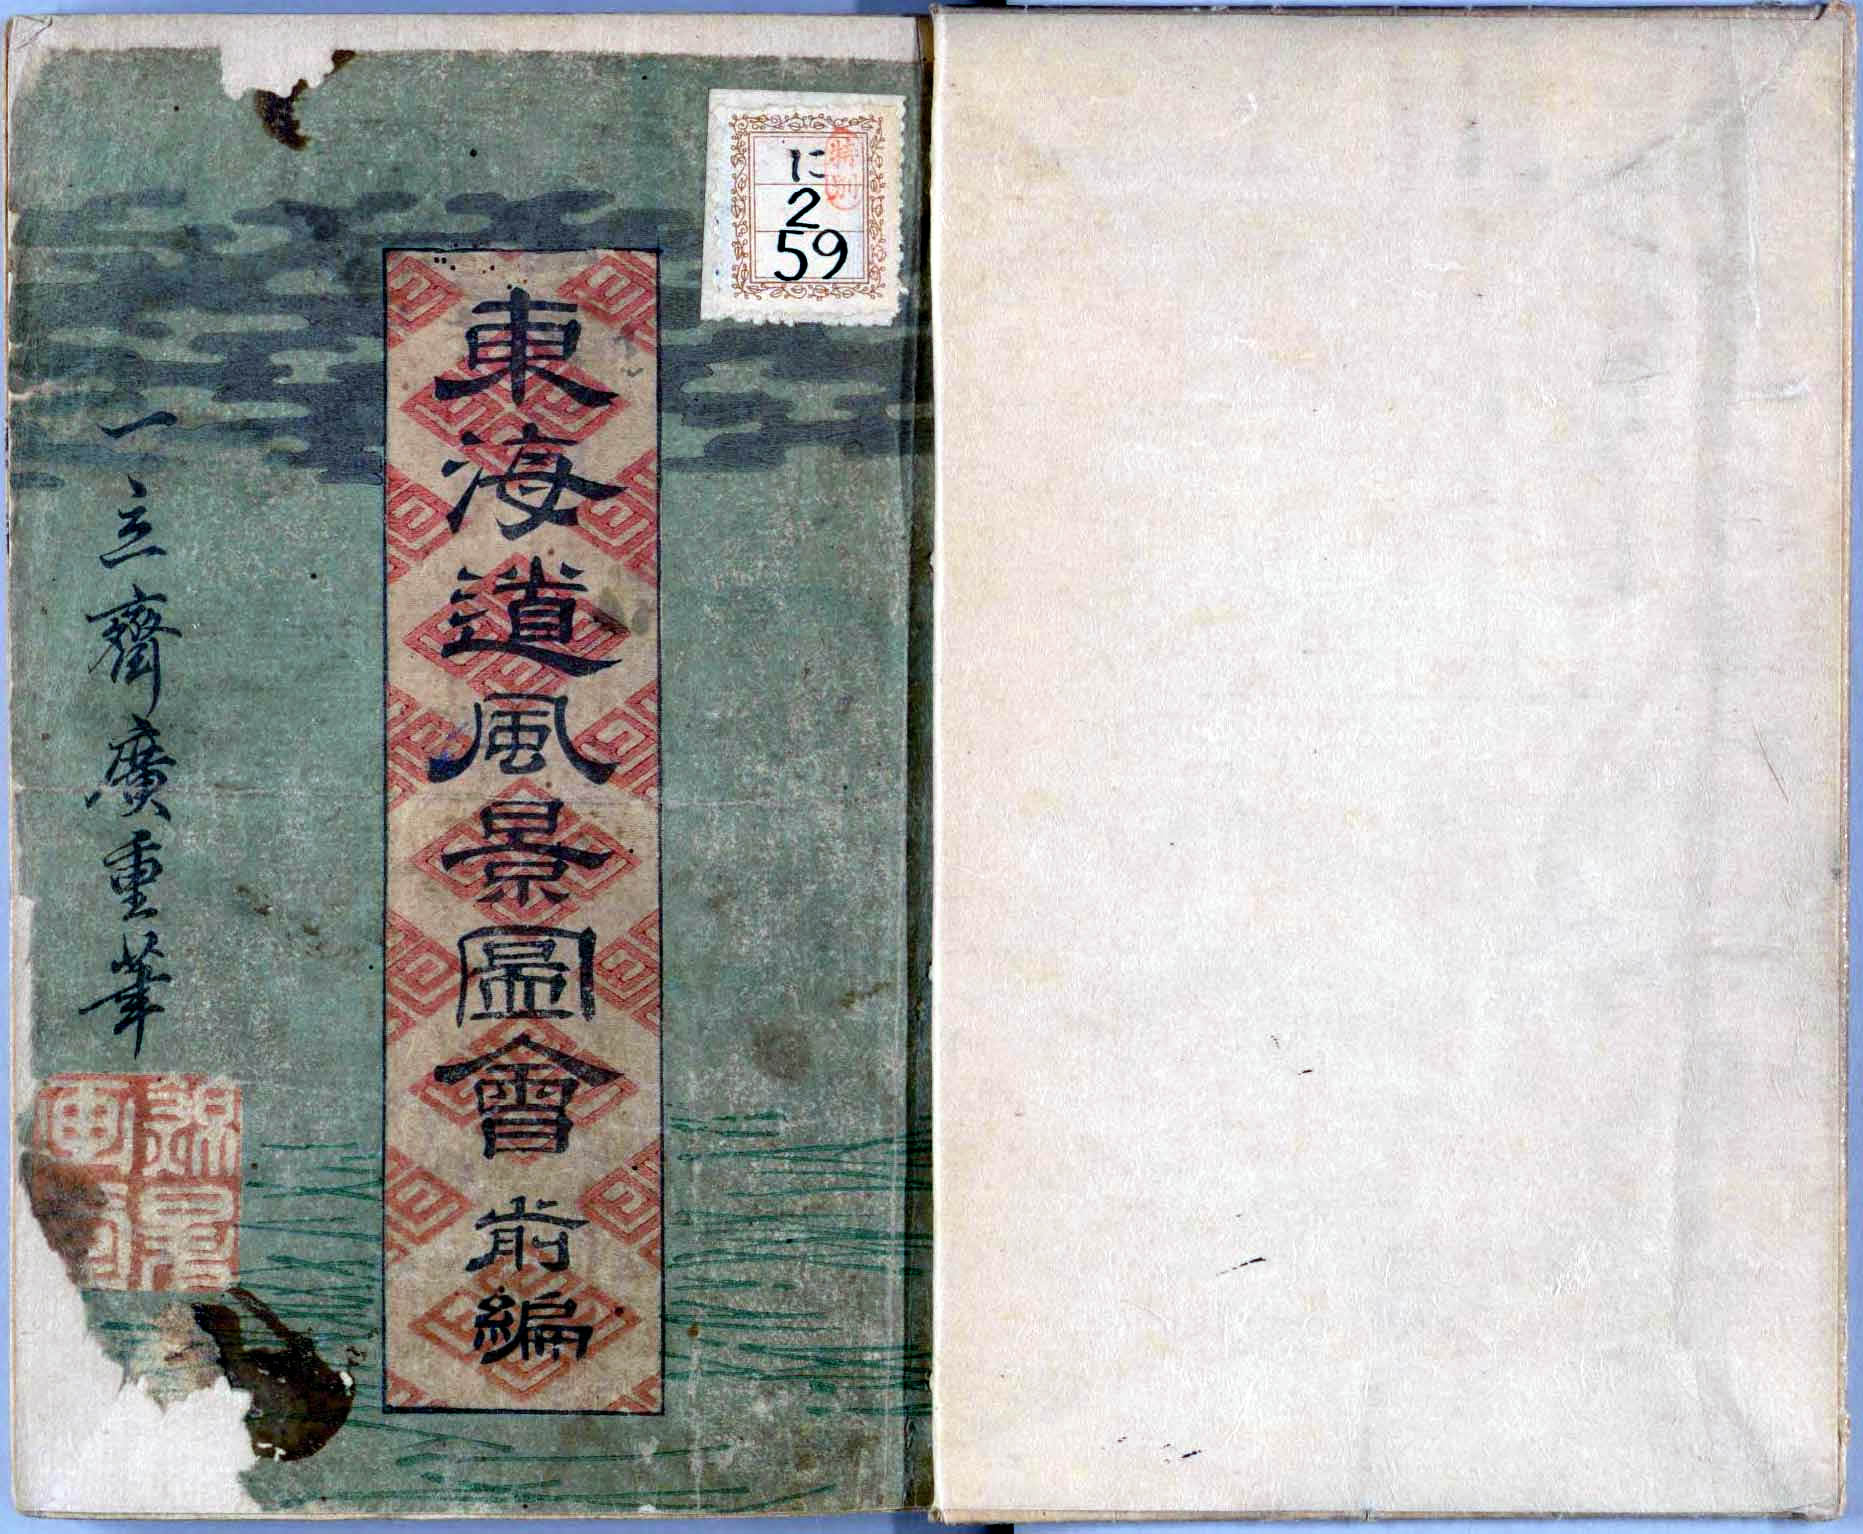 に
特別
2
59
東海道風景圖會 前編
一立齋廣重筆